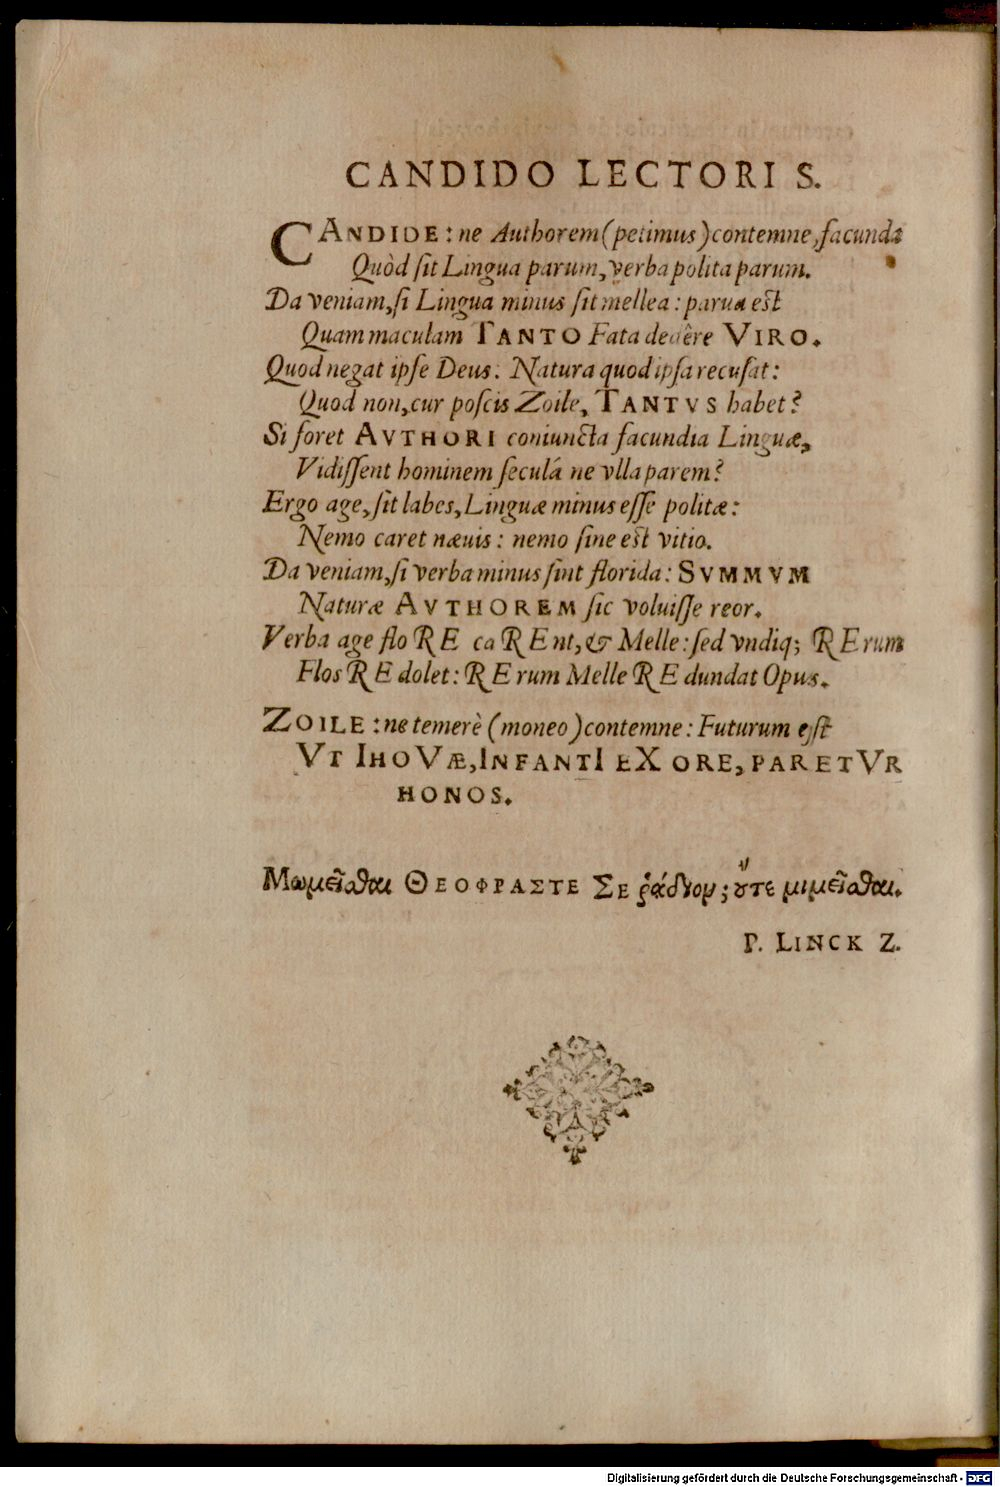 CANDIDO LECTORI S.
CANDIDE: ne Authorem (petimus) contemne, facunda
Quòd sit Lingua parum, verba polita parum.
Da veniam, si Lingua minus sit mellea: parua est
Quam maculam TANTO Fata dedêre VIRO.
Quod negat ipse Deus: Natura quod ipsa recusat:
Quod non, cur poscis Zoile, TANTVS habet?
Si foret AVTHORI coniuncta facundia Linguæ,
Vidissent hominem seculá ne vlla parem?
Ergo age, sit labes, Linguæ minus esse politæ:
Nemo caret næuis: nemo sine est vitio.
Da veniam, si verba minus sint florida: SVMMVM
Naturæ AVTHOREM sic voluisse reor.
Verba age floRE caREnt, & Melle: sed vndiq; RErum
Flos REdolet: RErum Melle REdundat Opus.
ZOILE: ne temerè (moneo) contemne: Futurum est
VT IHOVÆ, INFANTI EX ORE, PARETVR
HONOS.
Μωμεῖσθαι ΘΕΟΦΡΑΣΤΕ ΣΕ ῥάδιον; οὔτε μιμεῖσθαι.
P. LINCK Z.
Digitalisierung gefördert durch die Deutsche Forschungsgemeinschaft - DFG